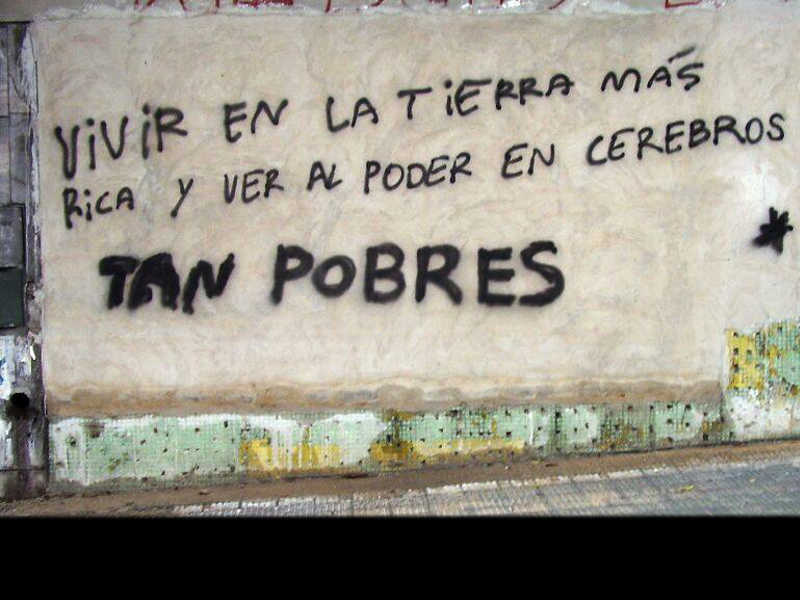 ViViR EN LA TiERRA MÁS
RiCA Y VER AL PODER EN CEREBROS
TAN POBRES
*